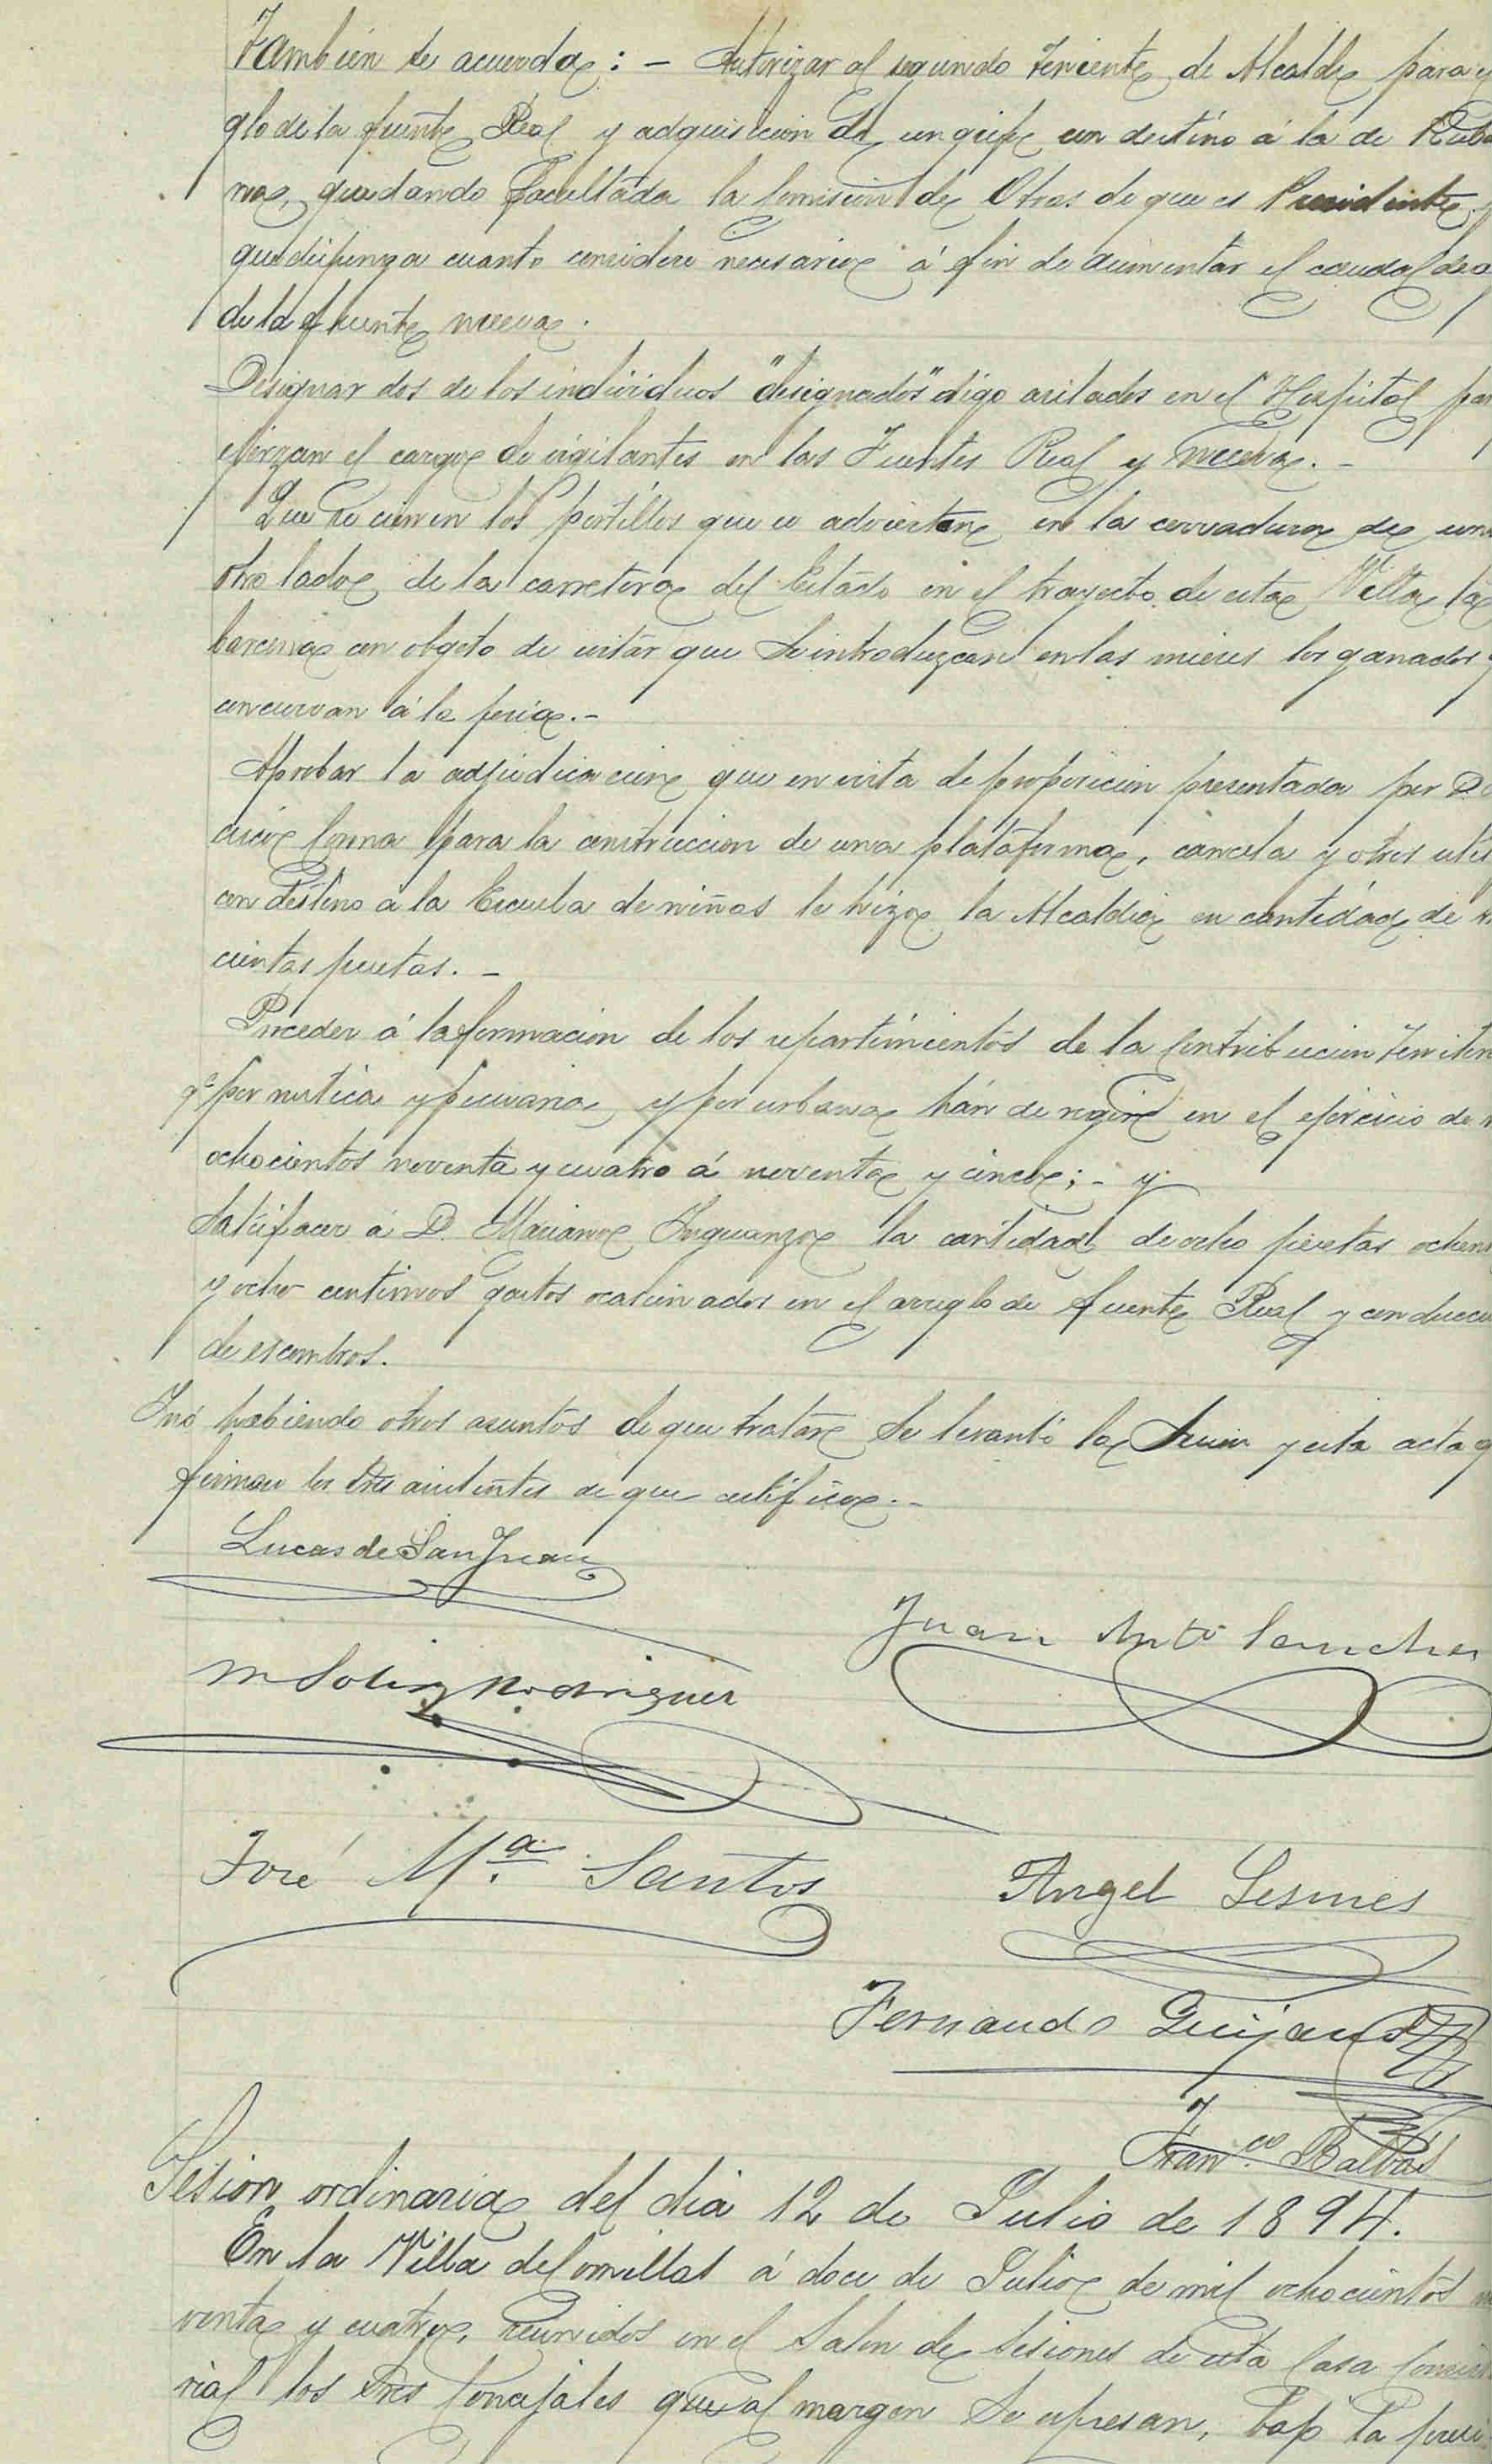 También se acuerda: - Autorizar al segundo Teniente de Alcalde para
glo de la fuente Real y adquisicion de un grife con destino á la de
quedando facultada la Comision de Obras de que es Presidente
que disponga cuanto considere necesario á fin de aumentar el caudal de
de la fuente nueva.
Designar dos de los individuos "designados" digo asilados en el Hospital par
ejerzan el cargo de vigilantes en las Fuentes Real y nueva. -
Que se cierren los portillos que se advierten en la cerradura de un
otro lado de la carretera del Estado en el trayecto de esta Villa
barcena con objeto de evitar que se introduzcan en las mieses los ganados
concurran á la feria. -
Aprobar la adjudicacion que en vista de proposicion presentada por D.
para la construccion de una plataforma, cancela y otros
con destino a la Escuela de niñas le hizo la Alcaldia en cantidad de
cientas pesetas. -
Proceder á la formacion de los repartimientos de la Contribucion Territor
qe por rustica y pecuaria, y por urbana hán de regir en el ejercicio de
ochocientos noventa y cuatro á noventa y cinco; - y
Satisfacer á D. Mariano Inguanzo la cantidad de ocho pesetas ochen
y ocho centimos gastos ocasionados en el arreglo de fuente Real y conducci
de escombros.
Y no habiendo otros asuntos de que tratar se levantó la Sesion y esta acta q
firman los Sres asistentes de que certifico. -
Lucas de San Juan
Juan Anto Sanchez
M Solis Rodriguez
José Ma. Santos
Angel Lesmes
Fernando Guijarro
Franco. Balbas
Sesion ordinaria del dia 12 de Julio de 1894.
En la Villa de Comillas á doce de Julio de mil ochocientos
venta y cuatro, reunidos en el Salon de Sesiones de esta Casa Consisto
rial los Sres Concejales que al margen se espresan, bajo la presi